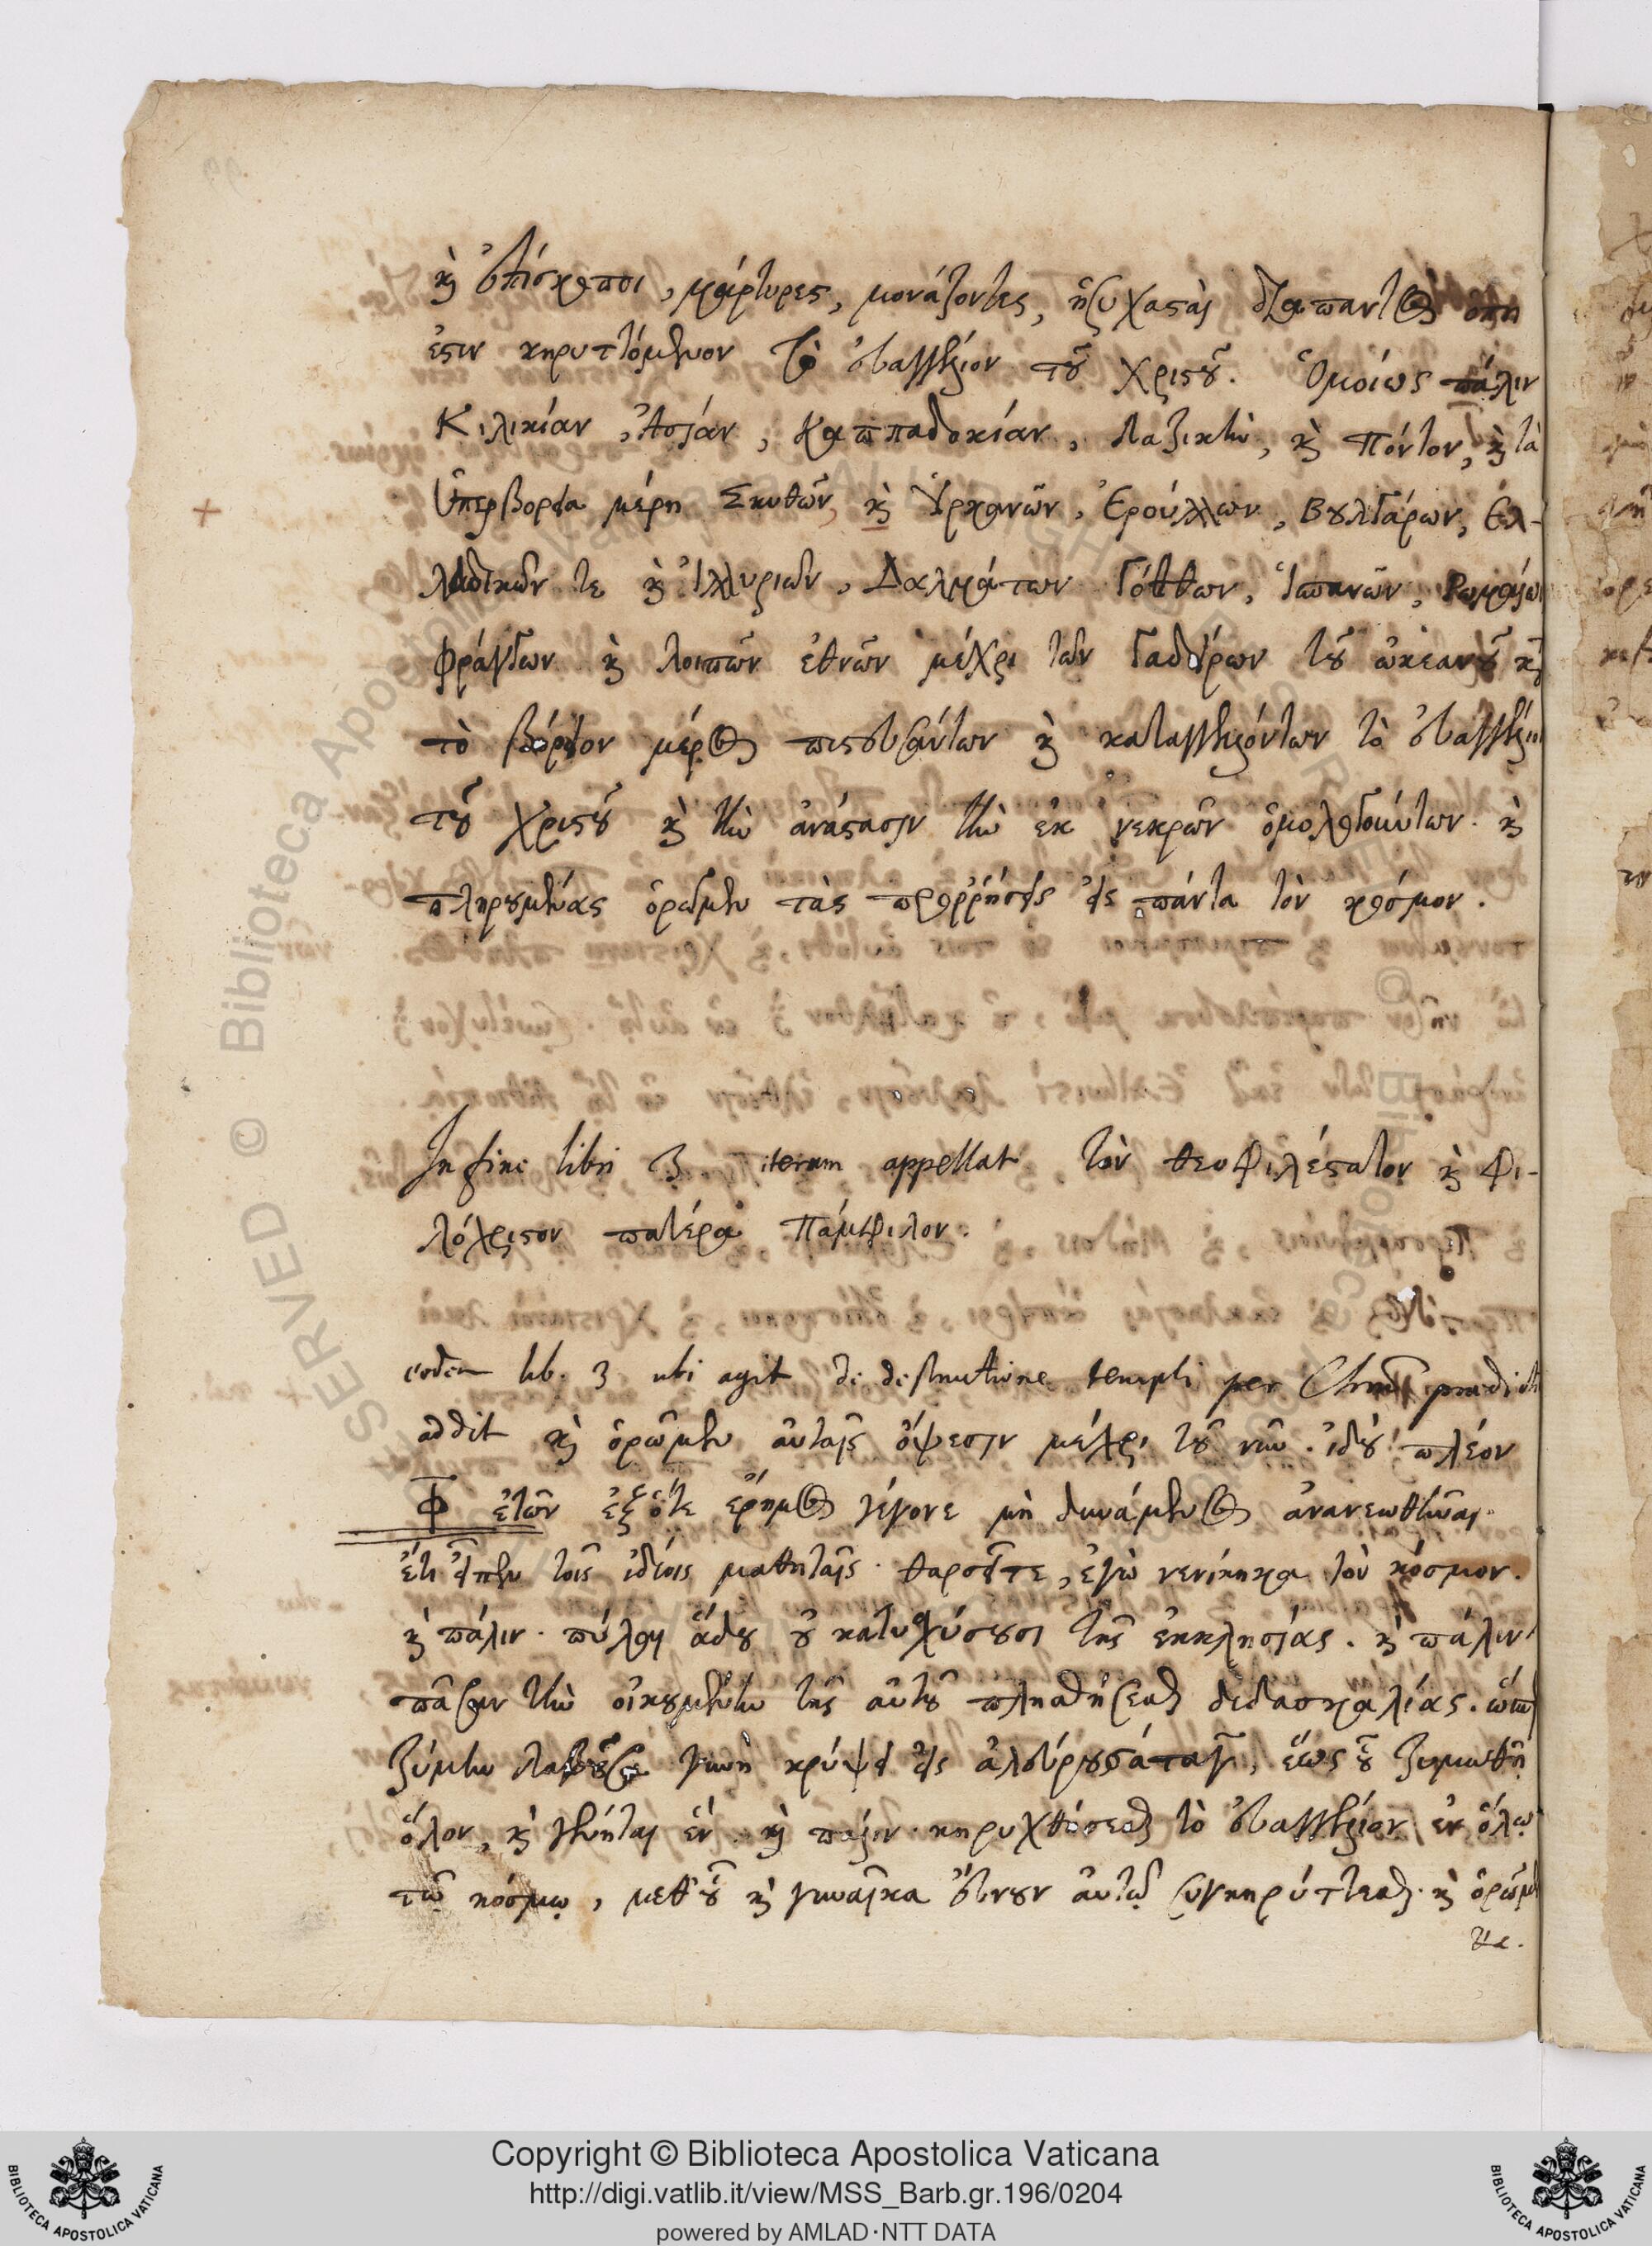 καὶ ἐπίσκοποι, μάρτυρες, μονάζοντες, ἡσυχασταὶ διαπαντὸς ὅπου
ἐστιν κηρυττόμενον τὸ ἐυαγγέλιον τοῦ χριστοῦ. Ὁμοίως πάλιν
Κιλικίαν, Ἀσίαν, Καππαδοκίαν, Λαζικὴν, καὶ Πόντον, καὶ τὰ
Ὑπερβόρεια μέρη Σκυθῶν, καὶ Ὑρκανῶν, Ἐρούλλων, Βουλγάρων, Ἑλ-
λαδικῶν τε καὶ Ἰλλυριῶν, Δαλμάτων Γότθων, Ἱσπανῶν, Ρωμαίων
Φράγγων καὶ λοιπῶν ἐθνῶν μέχρι τῶν Γαδείρων τοῦ ὠκεανοῦ κατὰ
τὸ βόρειον μέρος πιστευσάντων καὶ καταγγελόντων τὸ ἐυαγγέλιον
τοῦ χριστοῦ καὶ τὴν ἀνάστασιν τὴν ἐκ νεκρῶν ὁμολογούντων. καὶ
πληρουμένας ὁρῶμεν τὰς προρρήσεις εἰς πάντα τὸν κόσμον.
In fine libri 3. iterum appellat τὸν θεοφιλέστατον καὶ φι-
λόχριστον πατέρα Πάμφιλον.
eodem lib. 3 ubi agit de destructione templi per Christum praedicta
addit καὶ ὁρῶμεν αὐταῖς ὄψεσιν μέχρι τοῦ νῦν. ἰδοὺ πλέον
Φ ἐτῶν ἐξ ὅτε ἔρημος γέγονε μὴ δυνάμενος ἀνανεωθῆναι.
ἔτι εἶπεν τοῖς ἰδίοις μαθηταῖς. θαρσεῖτε, ἐγὼ νενίκηκα τὸν κόσμον.
καὶ πάλιν. πύλαι ἅδου οὐ κατισχύσουσι τῆς ἐκκλησίας. καὶ πάλιν
πᾶσαν τὴν οἰκουμένην τῆς αὐτοῦ πλησθήσεσθαι διδασκαλίας.
ζύμην λαβοῦσα γυνὴ κρύψει εἰς ἀλεύρου σάτα γ, ἕως οὗ ζυμωθῇ
ὅλον, καὶ γένηται ἕν. καὶ πάλιν. κηρυχθήσεσθαι τὸ ἐυαγγέλιον ἐν ὅλῳ
τῷ κόσμῳ, μεθ' οὗ καὶ γυναῖκα εὔνουν αὐτῷ συγκηρύττεσθαι. καὶ ὁρῶμεν